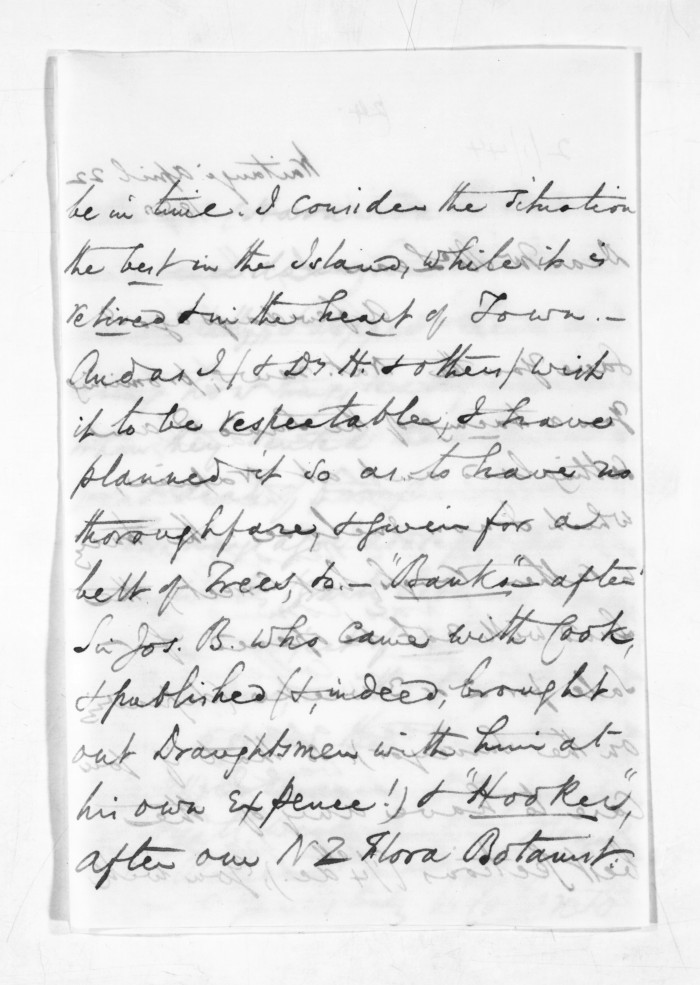 be in time. I consider the situation
the best in the Island, while it is
retired & in the heart of Town. –
And as I (& Dr. H. & others) wish
it to be respectable, I have
planned it so as to have no
thoroughfare, & given for a
belt of Trees, &c. – "Banks" after
Sir Jos. B. who came with Cook,
& published (&, indeed, brought
out Draughtsmen with him at
his own Expence!) & "Hooker",
after our NZ Flora Botanist.